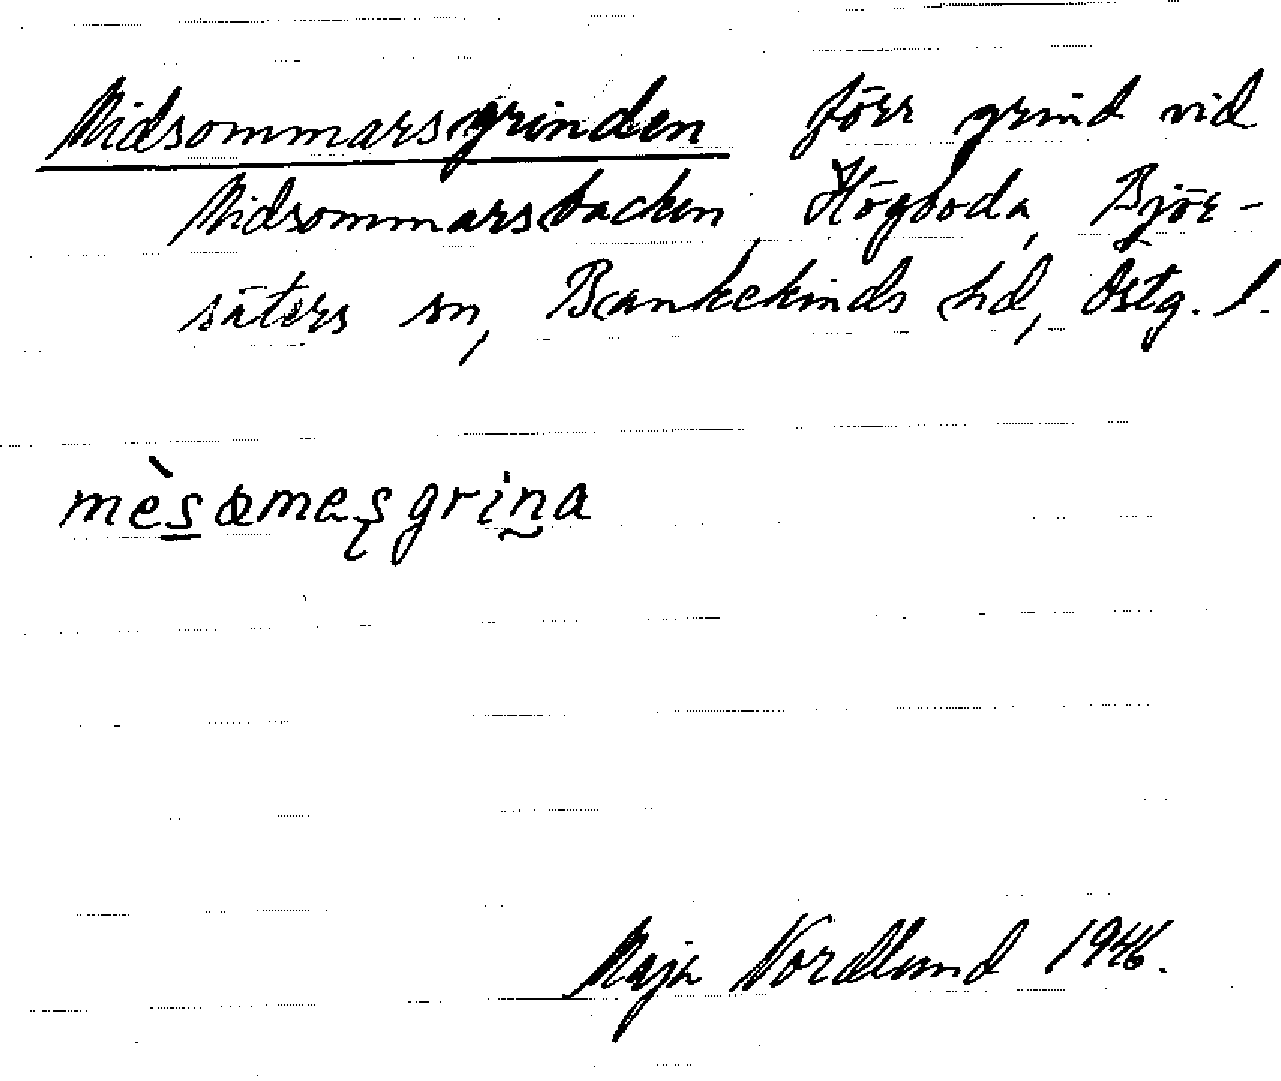 Midsommarsgrinden förr grind vid
Midsommarsbacken Högboda, Björ-
säters sn, Bankekinds hd, Östg. l.
mèsɷmesgrina
Maja Nordlund 1946.